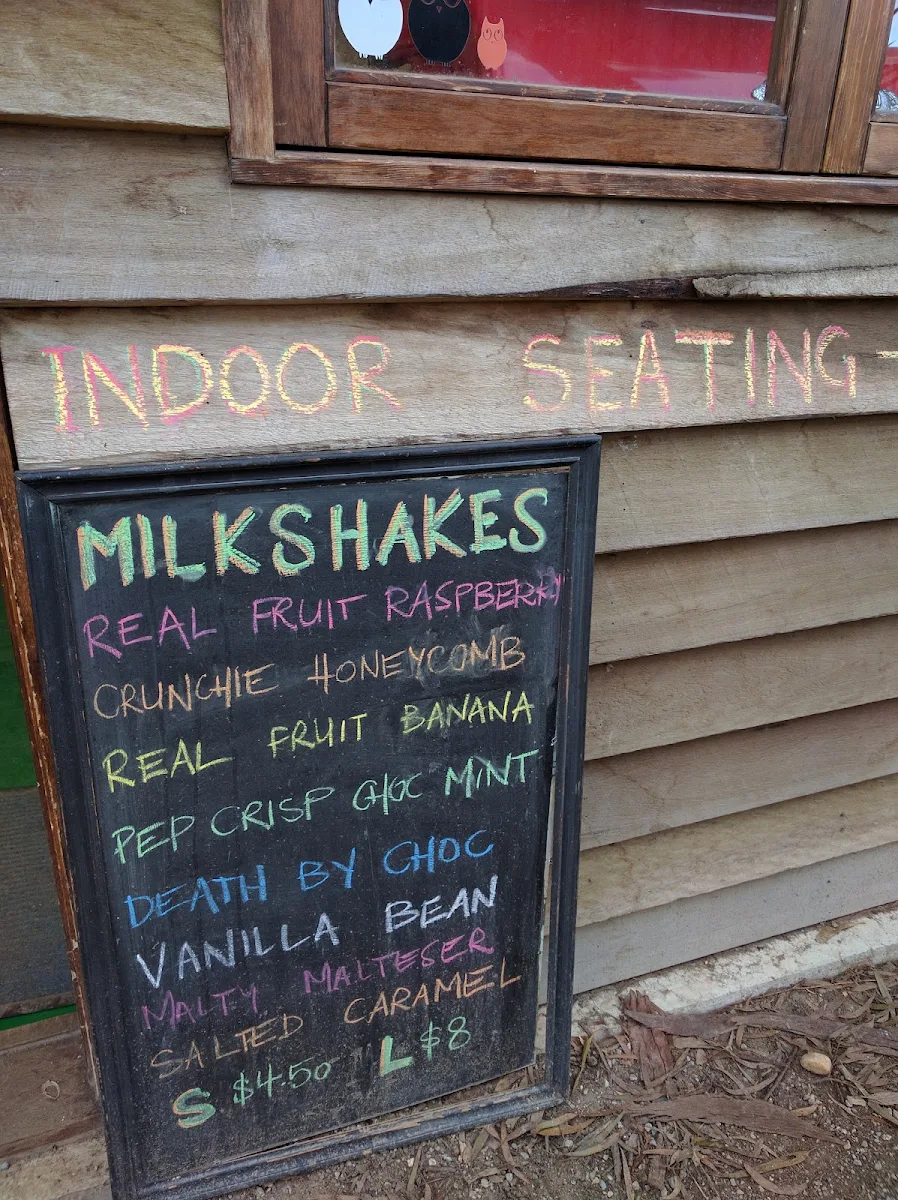 INDOOR SEATING -
MILKSHAKES
REAL FRUIT RASPBERRY
CRUNCHIE HONEYCOMB
REAL FRUIT BANANA
PEP CRISP CHOC MINT
DEATH BY CHOC
VANILLA BEAN
MALTY MALTESER
SALTED CARAMEL
S $4.50 L $8